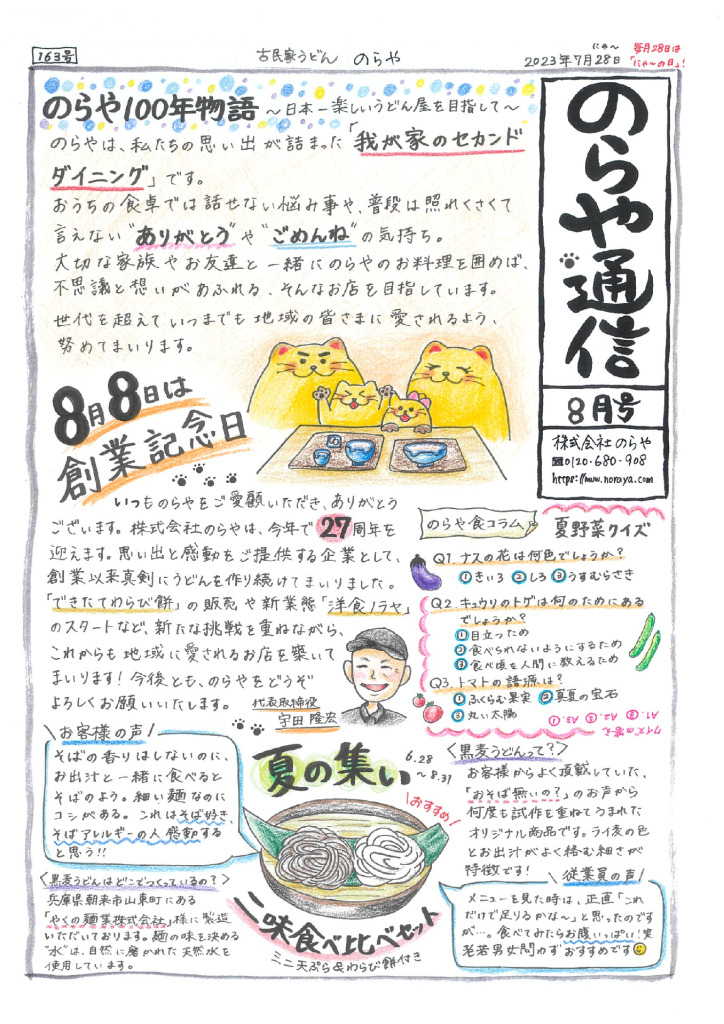 163号
古民家うどん のらや
にゃ〜
2023年7月28日
毎月28日は
「にゃ〜の日」!
のらや通信
8月号
株式会社のらや
☎0120-680-908
https://www.noraya.com
のらや100年物語 〜日本一楽しいうどん屋を目指して〜
のらやは、私たちの思い出が詰まった「我が家のセカンド
ダイニング」です。
おうちの食卓では話せない悩み事や、普段は照れくさくて
言えない"ありがとう"や"ごめんね"の気持ち。
大切な家族やお友達と一緒にのらやのお料理を囲めば、
不思議と想いがあふれる、そんなお店を目指しています。
世代を超えていつまでも地域の皆さまに愛されるよう、
努めてまいります。
8月8日は
創業記念日
いつものらやをご愛顧いただき、ありがとう
ございます。株式会社のらやは、今年で27周年を
迎えます。思い出と感動をご提供する企業として、
創業以来真剣にうどんを作り続けてまいりました。
「できたてわらび餅」の販売や新業態「洋食ノラヤ」
のスタートなど、新たな挑戦を重ねながら、
これからも地域に愛されるお店を築いて
まいります!今後とも、のらやをどうぞ
よろしくお願いいたします。
代表取締役
宇田 隆宏
のらや食コラム
夏野菜クイズ
Q1.ナスの花は何色でしょうか?
①きいろ ②しろ ③うすむらさき
Q2.キュウリのトゲは何のためにある
でしょうか?
①目立つため
②食べられないようにするため
③食べ頃を人間に教えるため
Q3.トマトの語源は?
①ふくらむ果実 ②真夏の宝石
③丸い太陽
クイズの答え A1.③ A2.② A3.①
お客様の声
そばの香りはしないのに、
お出汁と一緒に食べると
そばのよう。細い麺なのに
コシがある。これはそば好き、
そばアレルギーの人感動する
と思う!!
<黒麦うどんはどこでつくっているの?>
兵庫県朝来市山東町にある
「やくの麺業株式会社」様に製造
いただいております。麺の味を決める
"水"は、自然に磨かれた天然水を
使用しています。
夏の集い
6.28
〜8.31
おすすめ!
二味食べ比べセット
ミニ天ぷら&わらび餅付き
<黒麦うどんって?>
お客様からよく頂戴していた、
「おそば無いの?」のお声から
何度も試作を重ねてうまれた
オリジナル商品です。ライ麦の色
とお出汁がよく絡む細さが
特徴です!
従業員の声
メニューを見た時は、正直「これ
だけで足りるかな〜」と思ったのです
が…。食べてみたらお腹いっぱい!笑
老若男女問わずおすすめです